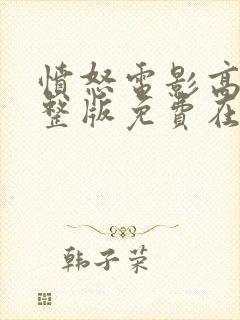 憤怒电影高
整版免費在
韩子荣